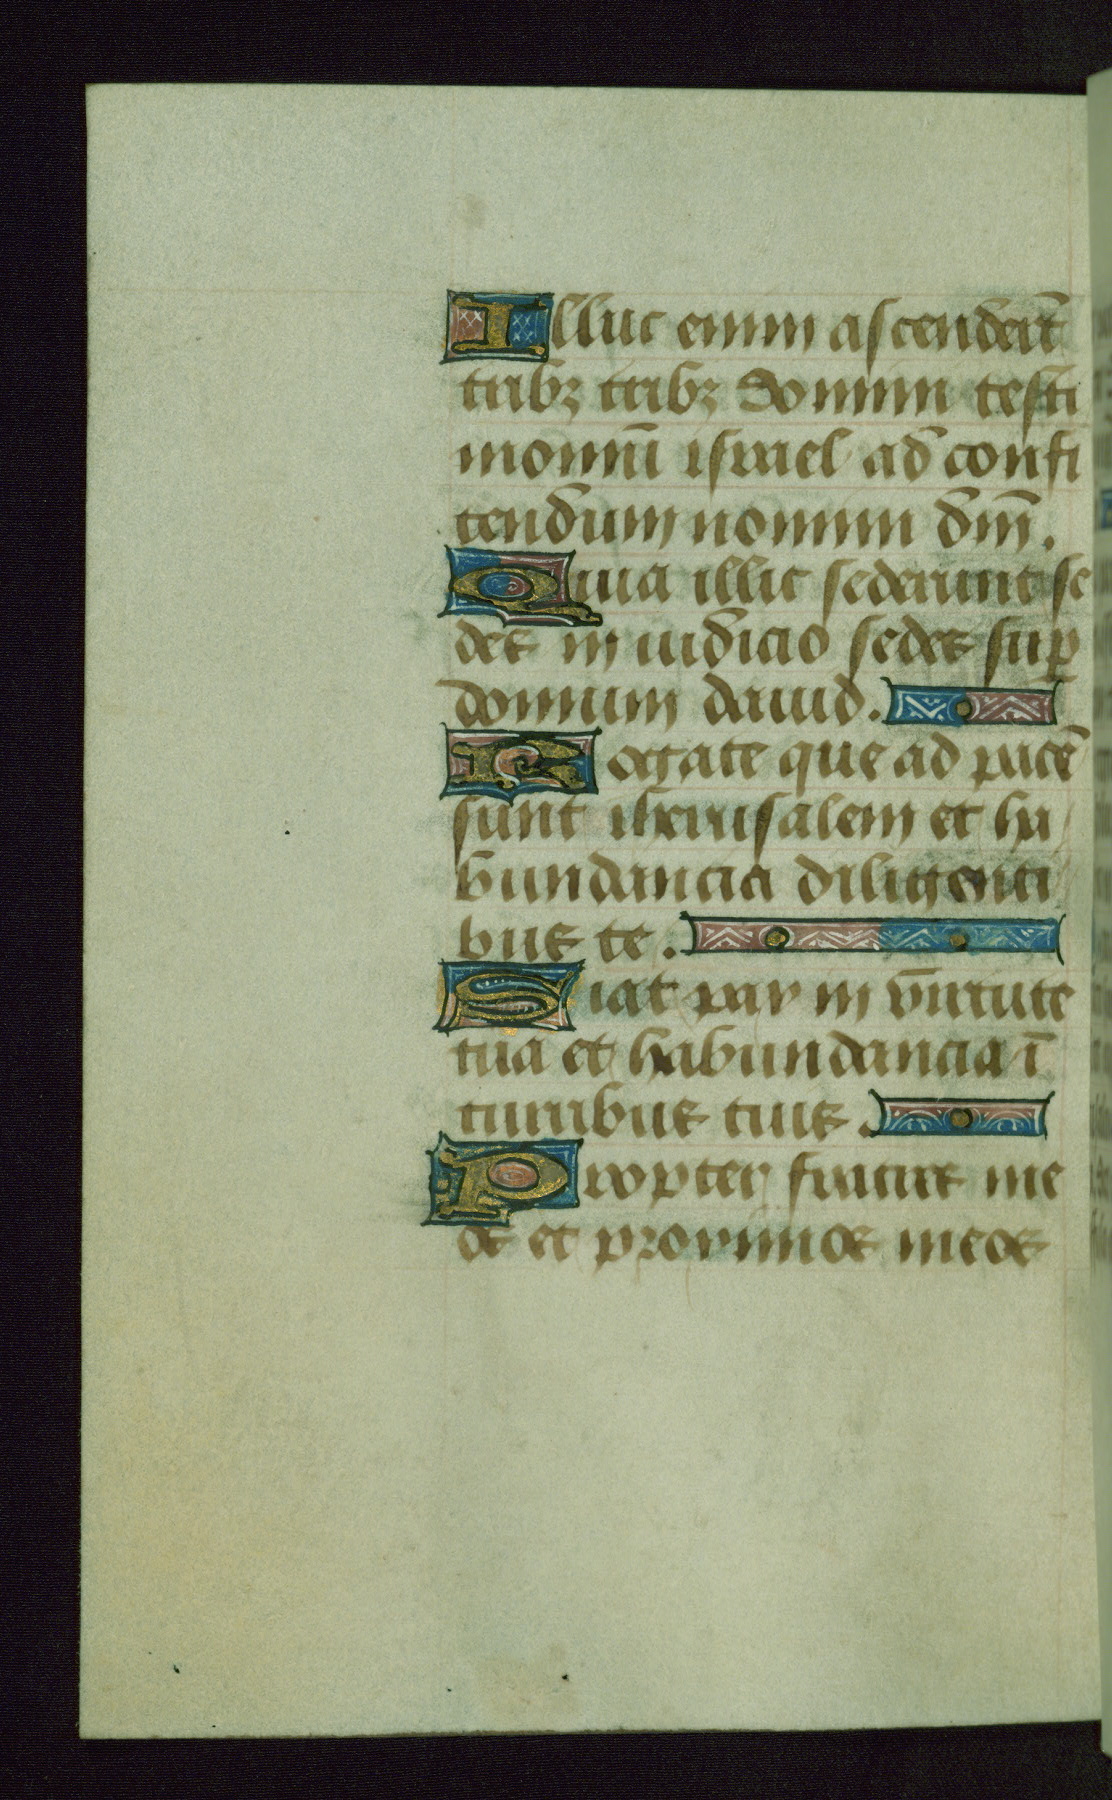 Illuc enim ascenderūt
tribꝫ tribꝫ domini testi
moniū israel ad confi
tendum nomini dm̄.
Quia illic sederunt se
des in iudicio sedes suꝑ
domum dauid.
Rogate que ad pacē
sunt iherusalem et ha
bundancia diligenti
bus te.
Fiat pax in virtute
tua et habundancia ī
turribus tuis.
Propter fratres me
os et proximos meos